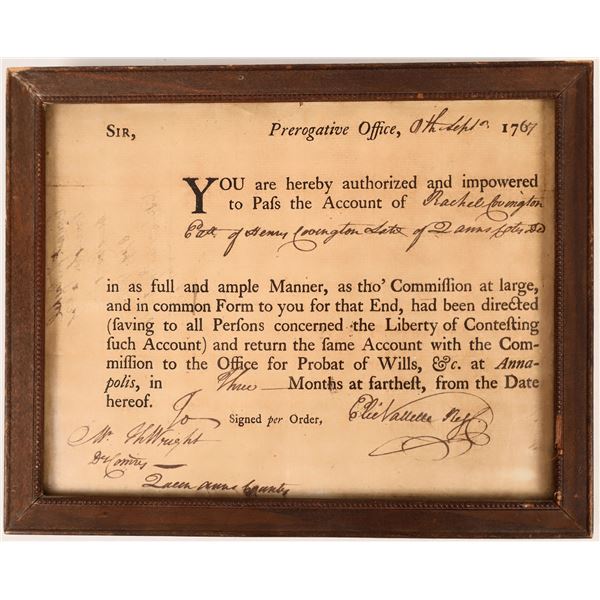 SIR, Prerogative Office, 8th Sept.r 1767
YOU are hereby authorized and impowered
to Paſs the Account of Rachel Covington
of Henry Covington Late of
in as full and ample Manner, as tho' Commiſſion at large,
and in common Form to you for that End, had been directed
(ſaving to all Perſons concerned the Liberty of Conteſting
ſuch Account) and return the ſame Account with the Com-
miſſion to the Office for Probat of Wills, &c. at Anna-
polis, in Three Months at fartheſt, from the Date
hereof.
Signed per Order, Elie Vallette Reg.
To
Mr. Th Wright
Dy Comry
Queen Anns County